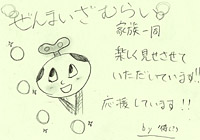 ぜんまいざむらい
家族一同
楽しく見せさせて
いただいています!!
応援しています!!
by